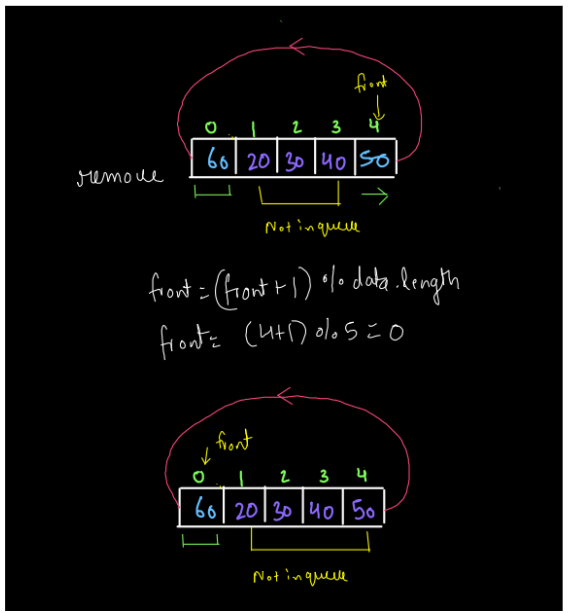 front
0 1 2 3 4
60 20 30 40 50
remove
Not in queue
front = (front + 1) % data.length
front = (4+1) % 5 = 0
front
0 1 2 3 4
60 20 30 40 50
Not in queue